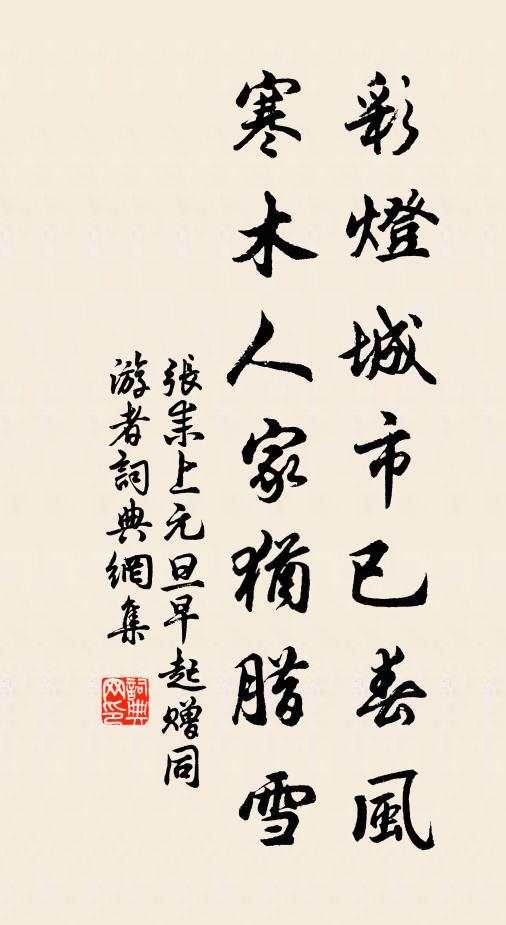 彩燈城市已春風
寒木人家猶腊雪
張耒上元旦早起赠同
游者詞典網集
詞典网印